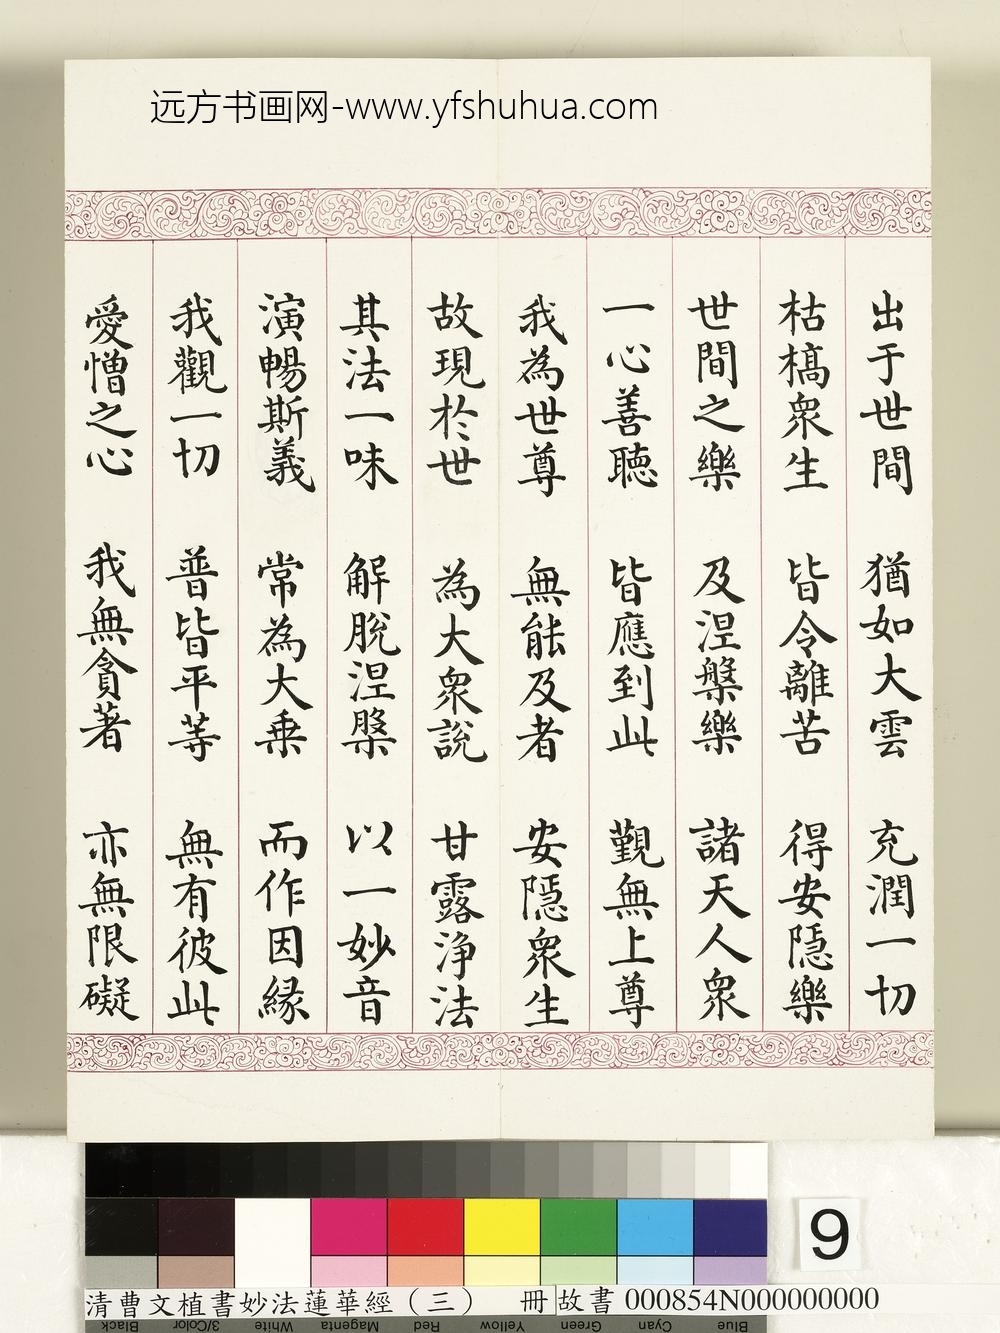 远方书画网-www.yfshuhua.com
出于世間 猶如大雲 充潤一切
枯槁衆生 皆令離苦 得安隱樂
世間之樂 及涅槃樂 諸天人衆
一心善聽 皆應到此 覲無上尊
我為世尊 無能及者 安隱衆生
故現於世 為大衆說 甘露淨法
其法一味 解脫涅槃 以一妙音
演暢斯義 常為大乗 而作因緣
我觀一切 普皆平等 無有彼此
愛憎之心 我無貪著 亦無限礙
9
清曹文植書妙法蓮華經（三） 冊 故書 000854N000000000
Black 3/Color White Magenta Red Yellow Green Cyan Blue